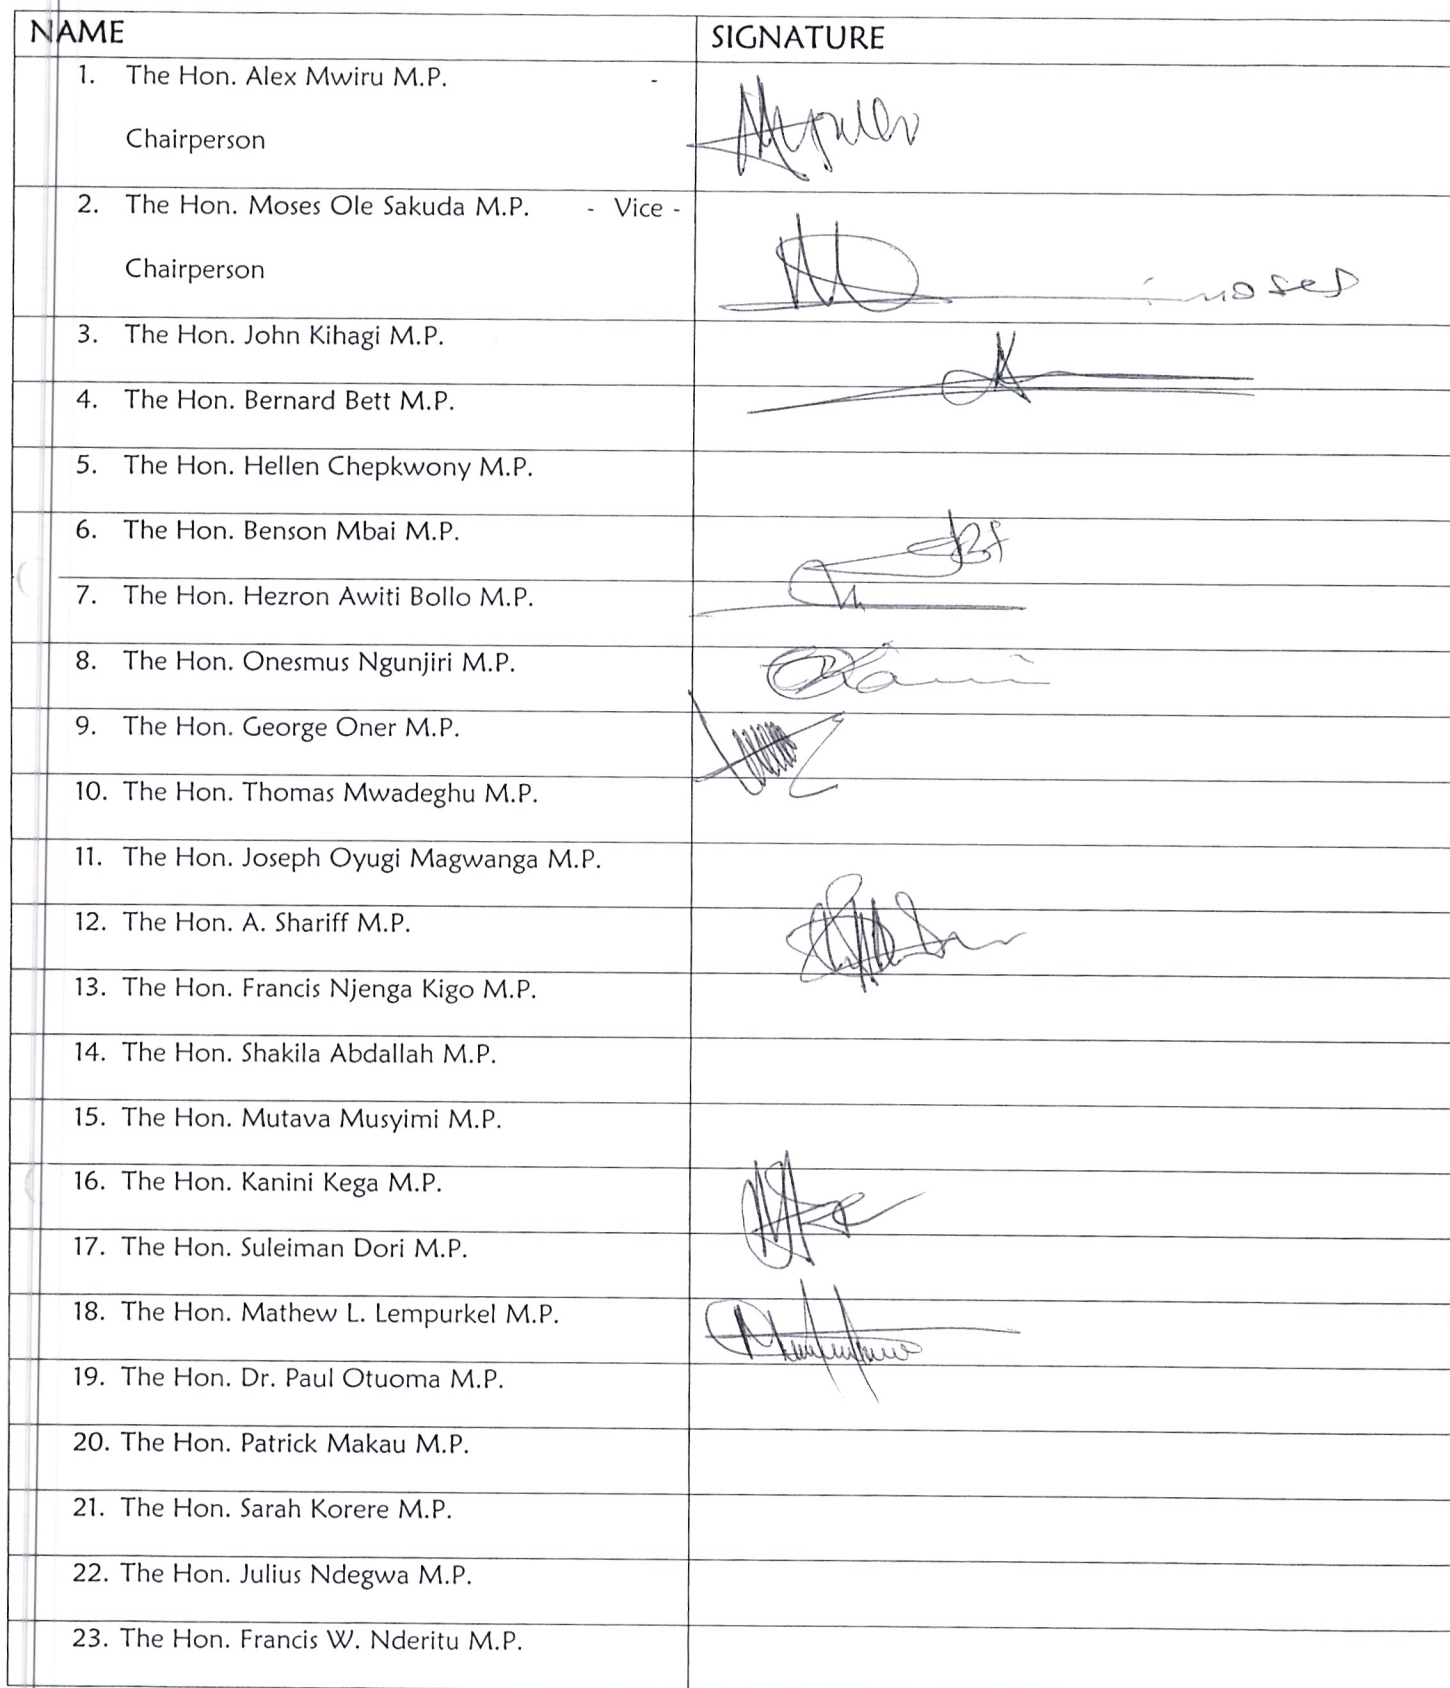 NAME SIGNATURE
1. The Hon. Alex Mwiru M.P. -
Chairperson
2. The Hon. Moses Ole Sakuda M.P. - Vice -
Chairperson moses
3. The Hon. John Kihagi M.P.
4. The Hon. Bernard Bett M.P.
5. The Hon. Hellen Chepkwony M.P.
6. The Hon. Benson Mbai M.P.
7. The Hon. Hezron Awiti Bollo M.P.
8. The Hon. Onesmus Ngunjiri M.P.
9. The Hon. George Oner M.P.
10. The Hon. Thomas Mwadeghu M.P.
11. The Hon. Joseph Oyugi Magwanga M.P.
12. The Hon. A. Shariff M.P.
13. The Hon. Francis Njenga Kigo M.P.
14. The Hon. Shakila Abdallah M.P.
15. The Hon. Mutava Musyimi M.P.
16. The Hon. Kanini Kega M.P.
17. The Hon. Suleiman Dori M.P.
18. The Hon. Mathew L. Lempurkel M.P.
19. The Hon. Dr. Paul Otuoma M.P.
20. The Hon. Patrick Makau M.P.
21. The Hon. Sarah Korere M.P.
22. The Hon. Julius Ndegwa M.P.
23. The Hon. Francis W. Nderitu M.P.